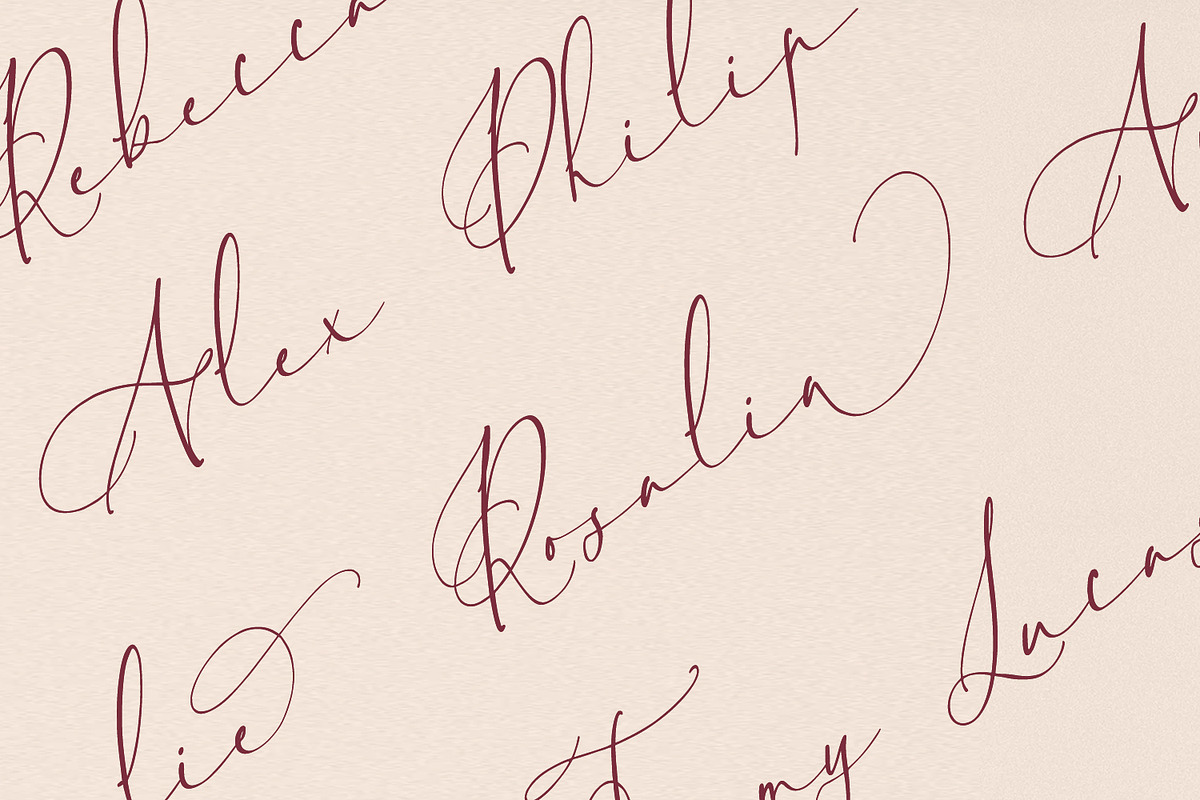 Rebecca
Philip
A
Alex
Rosalia
Lucas
lie
my